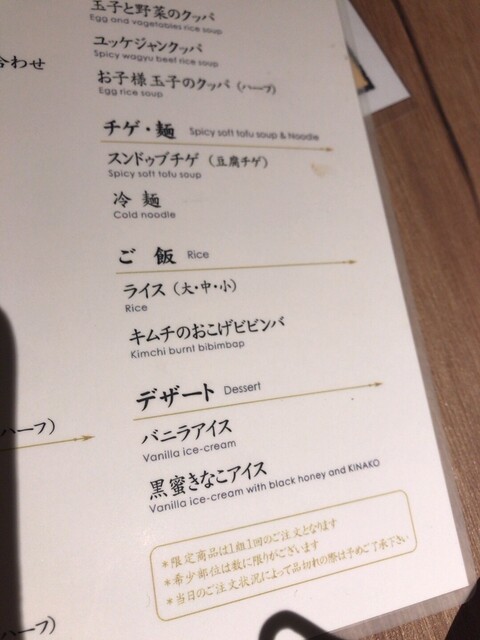 玉子と野菜のクッパ
Egg and vagetables rice soup
ユッケジャンクッパ
Spicy wagyu beef rice soup
合わせ
お子様玉子のクッパ（ハーフ）
Egg rice soup
チゲ・麺 Spicy soft tofu soup & Noodle
スンドゥブチゲ（豆腐チゲ）
Spicy soft tofu soup
冷 麺
Cold noodle
ご 飯 Rice
ライス（大・中・小）
Rice
キムチのおこげビビンバ
Kimchi burnt bibimbap
デザート Dessert
バニラアイス
Vanilla ice-cream
ハーフ）
黒蜜きなこアイス
Vanilla ice-cream with black honey and KINAKO
＊限定商品は1組1回のご注文となります
＊希少部位は数に限りがございます
＊当日のご注文状況によって品切れの際は予めご了承下さい
ハーフ）